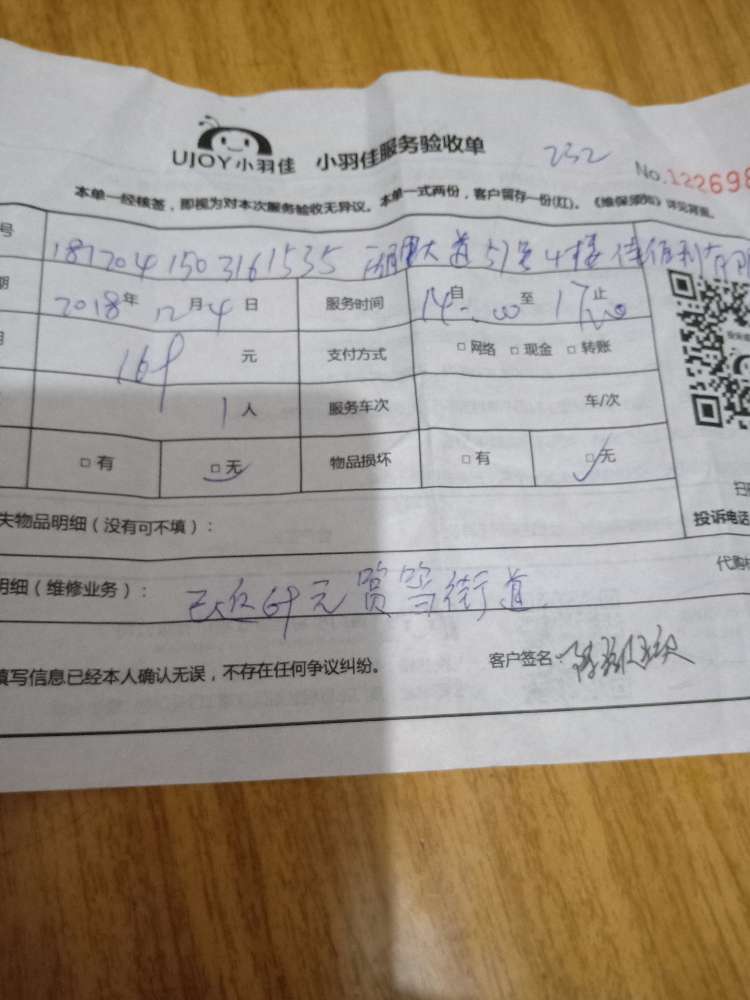 UJOY小羽佳 小羽佳服务验收单 232 No.122698
本单一经核签，即视为对本次服务验收无异议。本单一式两份，客户留存一份(红)。《维保须知》详见背面。
号 1812041503161535 大道51号4楼佳佰利有
期 2018年 12月4日 服务时间 自14:00至17:00止
169元 支付方式 □网络 □现金 □转账
1人 服务车次 车/次
□有 □无 物品损坏 □有 □无
失物品明细（没有可不填）： 投诉电话
明细（维修业务）： 69元 街道 代购
填写信息已经本人确认无误，不存在任何争议纠纷。 客户签名